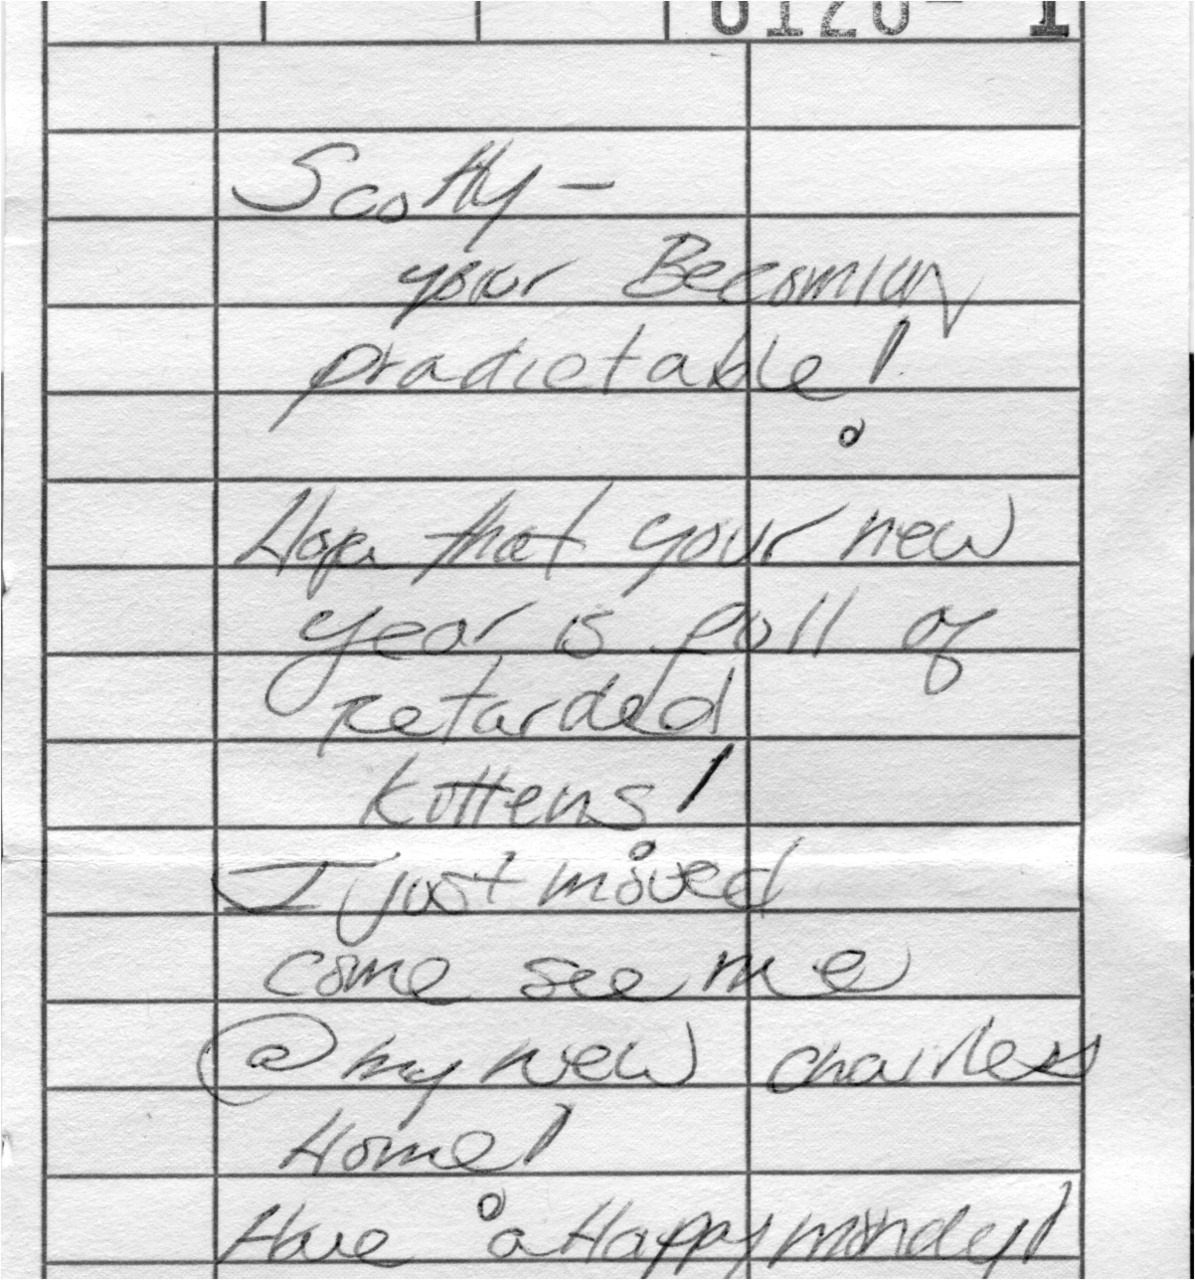 6120- 1
Scotty -
your Becoming
pradictable!
Hope that your new
year is full of
retarded
kittens!
I just moved
come see me
@ my new chairless
Home!
Have a Happy monday!